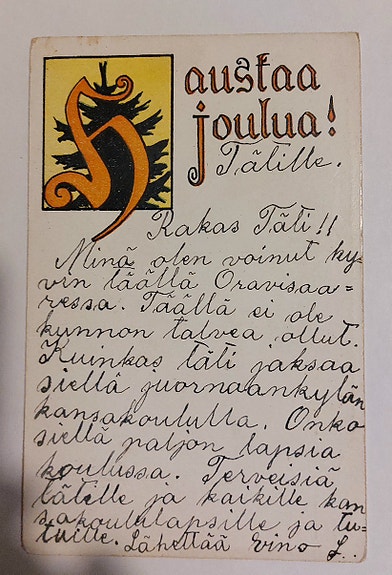 Hauskaa
joulua!
Tätille.
Rakas Täti!!
Minä olen voinut hy-
vin täällä Oravisaa-
ressa. Täällä ei ole
kunnon talvea ollut.
Kuinkas täti jaksaa
siellä juornaankylän
kansakoululla. Onko
siellä paljon lapsia
koulussa. Terveisiä
tätille ja kaikille kan
sakoululapsille ja tu-
tuille. Lähettää Eino L..